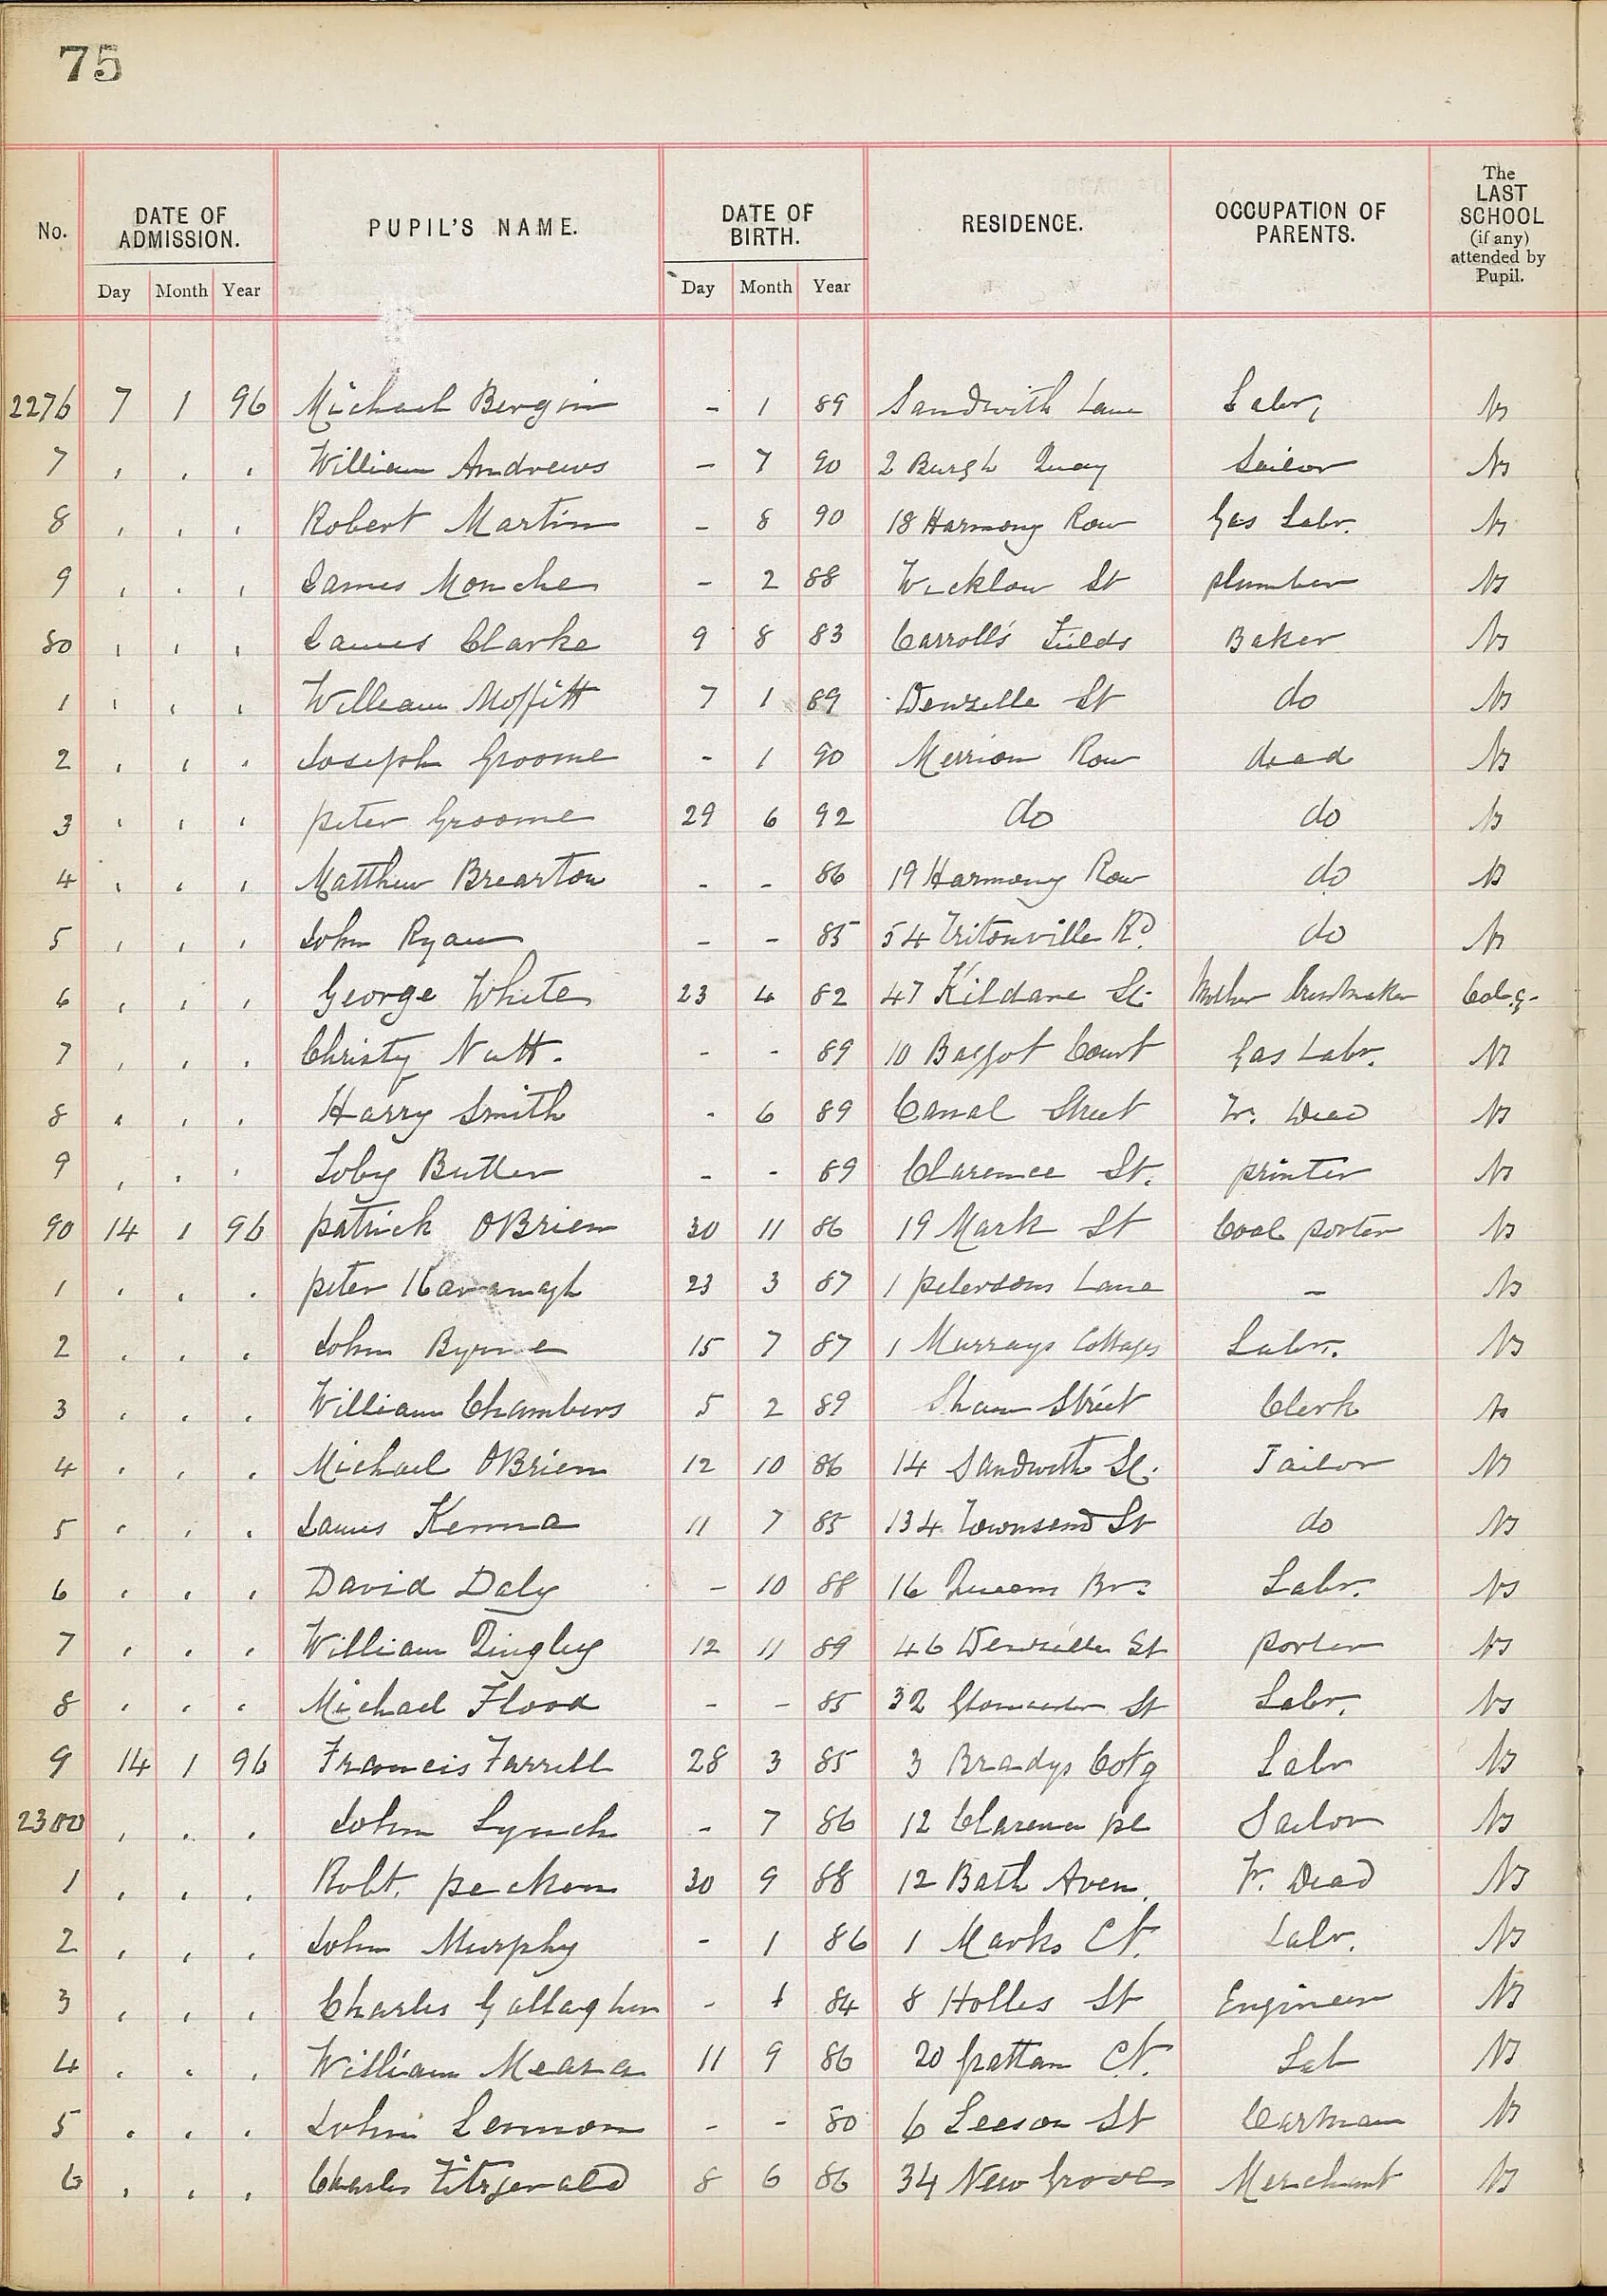 75
No. DATE OF ADMISSION. PUPIL'S NAME. DATE OF BIRTH. RESIDENCE. OCCUPATION OF PARENTS. The LAST SCHOOL (if any) attended by Pupil.
Day Month Year Day Month Year
2276 7 1 96 Michael Bergin - 1 89 Sandwith Lane Labr, NS
7 , , , William Andrews - 7 90 2 Burgh Quay Sailor NS
8 , , , Robert Martin - 8 90 18 Harmony Row Gas Labr. NS
9 , , , James - 2 88 Wicklow St plumber NS
80 , , , James Clarke 9 8 83 Carroll's Fields Baker NS
1 , , , William Moffitt 7 1 89 Denzille St do NS
2 , , , Joseph Groome - 1 90 Merrion Row dead NS
3 , , , peter Groome 29 6 92 do do NS
4 , , , Matthew Brearton - - 86 19 Harmony Row do NS
5 , , , John Ryan - - 85 54 Tritonville Rd. do NS
6 , , , George White 23 4 82 47 Kildare St. Mother Dressmaker
7 , , , Christy Nutt. - - 89 10 Baggot Court Gas Labr. NS
8 , , , Harry Smith - 6 89 Canal Street Fr. Dead NS
9 , , , Toby Butler - - 89 Clarence St. printer NS
90 14 1 96 patrick OBrien 30 11 86 19 Mark St Coal porter NS
1 , , , peter Kavanagh 23 3 87 1 petersons Lane - NS
2 , , , John Byrne 15 7 87 1 Murrays Cottages Labr. NS
3 , , , William Chambers 5 2 89 Shaw Street Clerk NS
4 , , , Michael OBrien 12 10 86 14 Sandwith St. Tailor NS
5 , , , James Kenna 11 7 85 134 Townsend St do NS
6 , , , David Daly - 10 88 16 Queens Labr. NS
7 , , , William Tingley 12 11 89 46 Denzille St porter NS
8 , , , Michael Flood - - 85 32 Gloucester St Labr. NS
9 14 1 96 Francis Farrell 28 3 85 3 Bradys Cotg Labr NS
2300 , , , John Lynch - 7 86 12 Clarence pl Sailor NS
1 , , , Robt. 30 9 88 12 Bath Aven. Fr. Dead NS
2 , , , John Murphy - 1 86 1 Marks Ct. Labr. NS
3 , , , Charles Gallagher - 1 84 8 Holles St Engineer NS
4 , , , William Meara 11 9 86 20 Grattan Ct. Lab NS
5 , , , John Lennon - - 80 6 Leeson St Cartman NS
6 , , , Charles Fitzgerald 8 6 86 34 New Grove Merchant NS